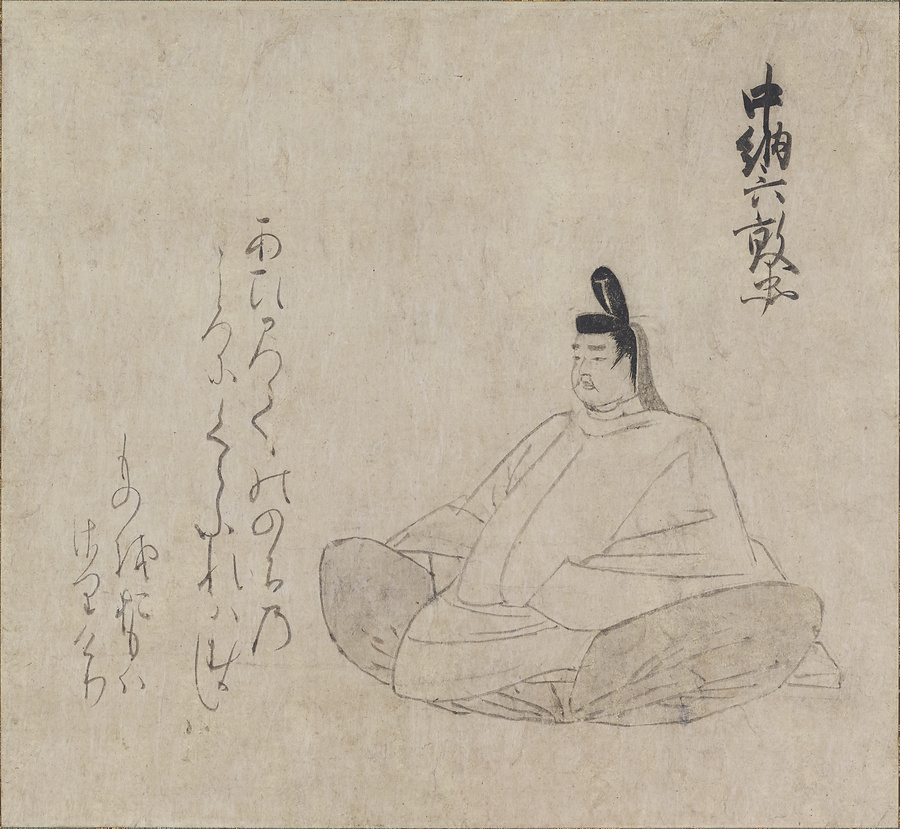 中納言敦忠
あひみてののちの
こゝろにくらふれは
ものをおもは
さりけり